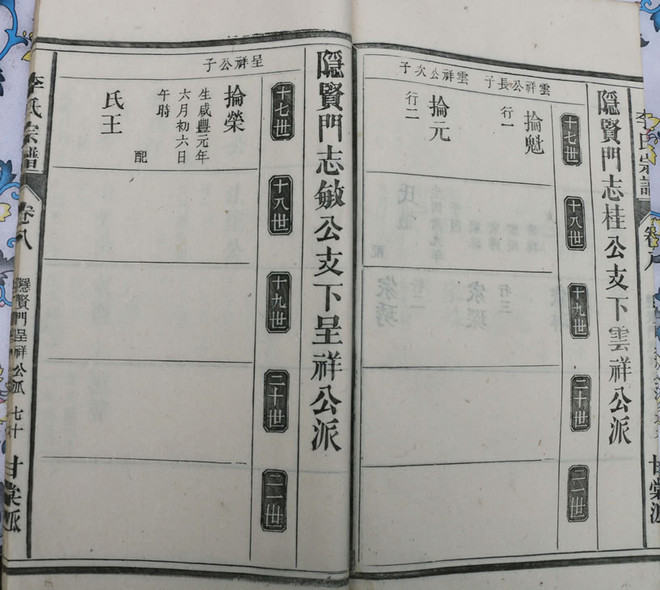 李氏宗譜
卷八
隱賢門志桂公支下雲祥公派
十七世
十八世
十九世
二十世
二一世
雲祥公長子
掄魁
行一
雲祥公次子
掄元
行二
隱賢門志敏公支下呈祥公派
十七世
十八世
十九世
二十世
二一世
呈祥公子
掄榮
生咸豐元年
六月初六日
午时
配
氏王
李氏宗譜
卷八
隱賢門呈祥公派
七十
甘棠派
甘棠派